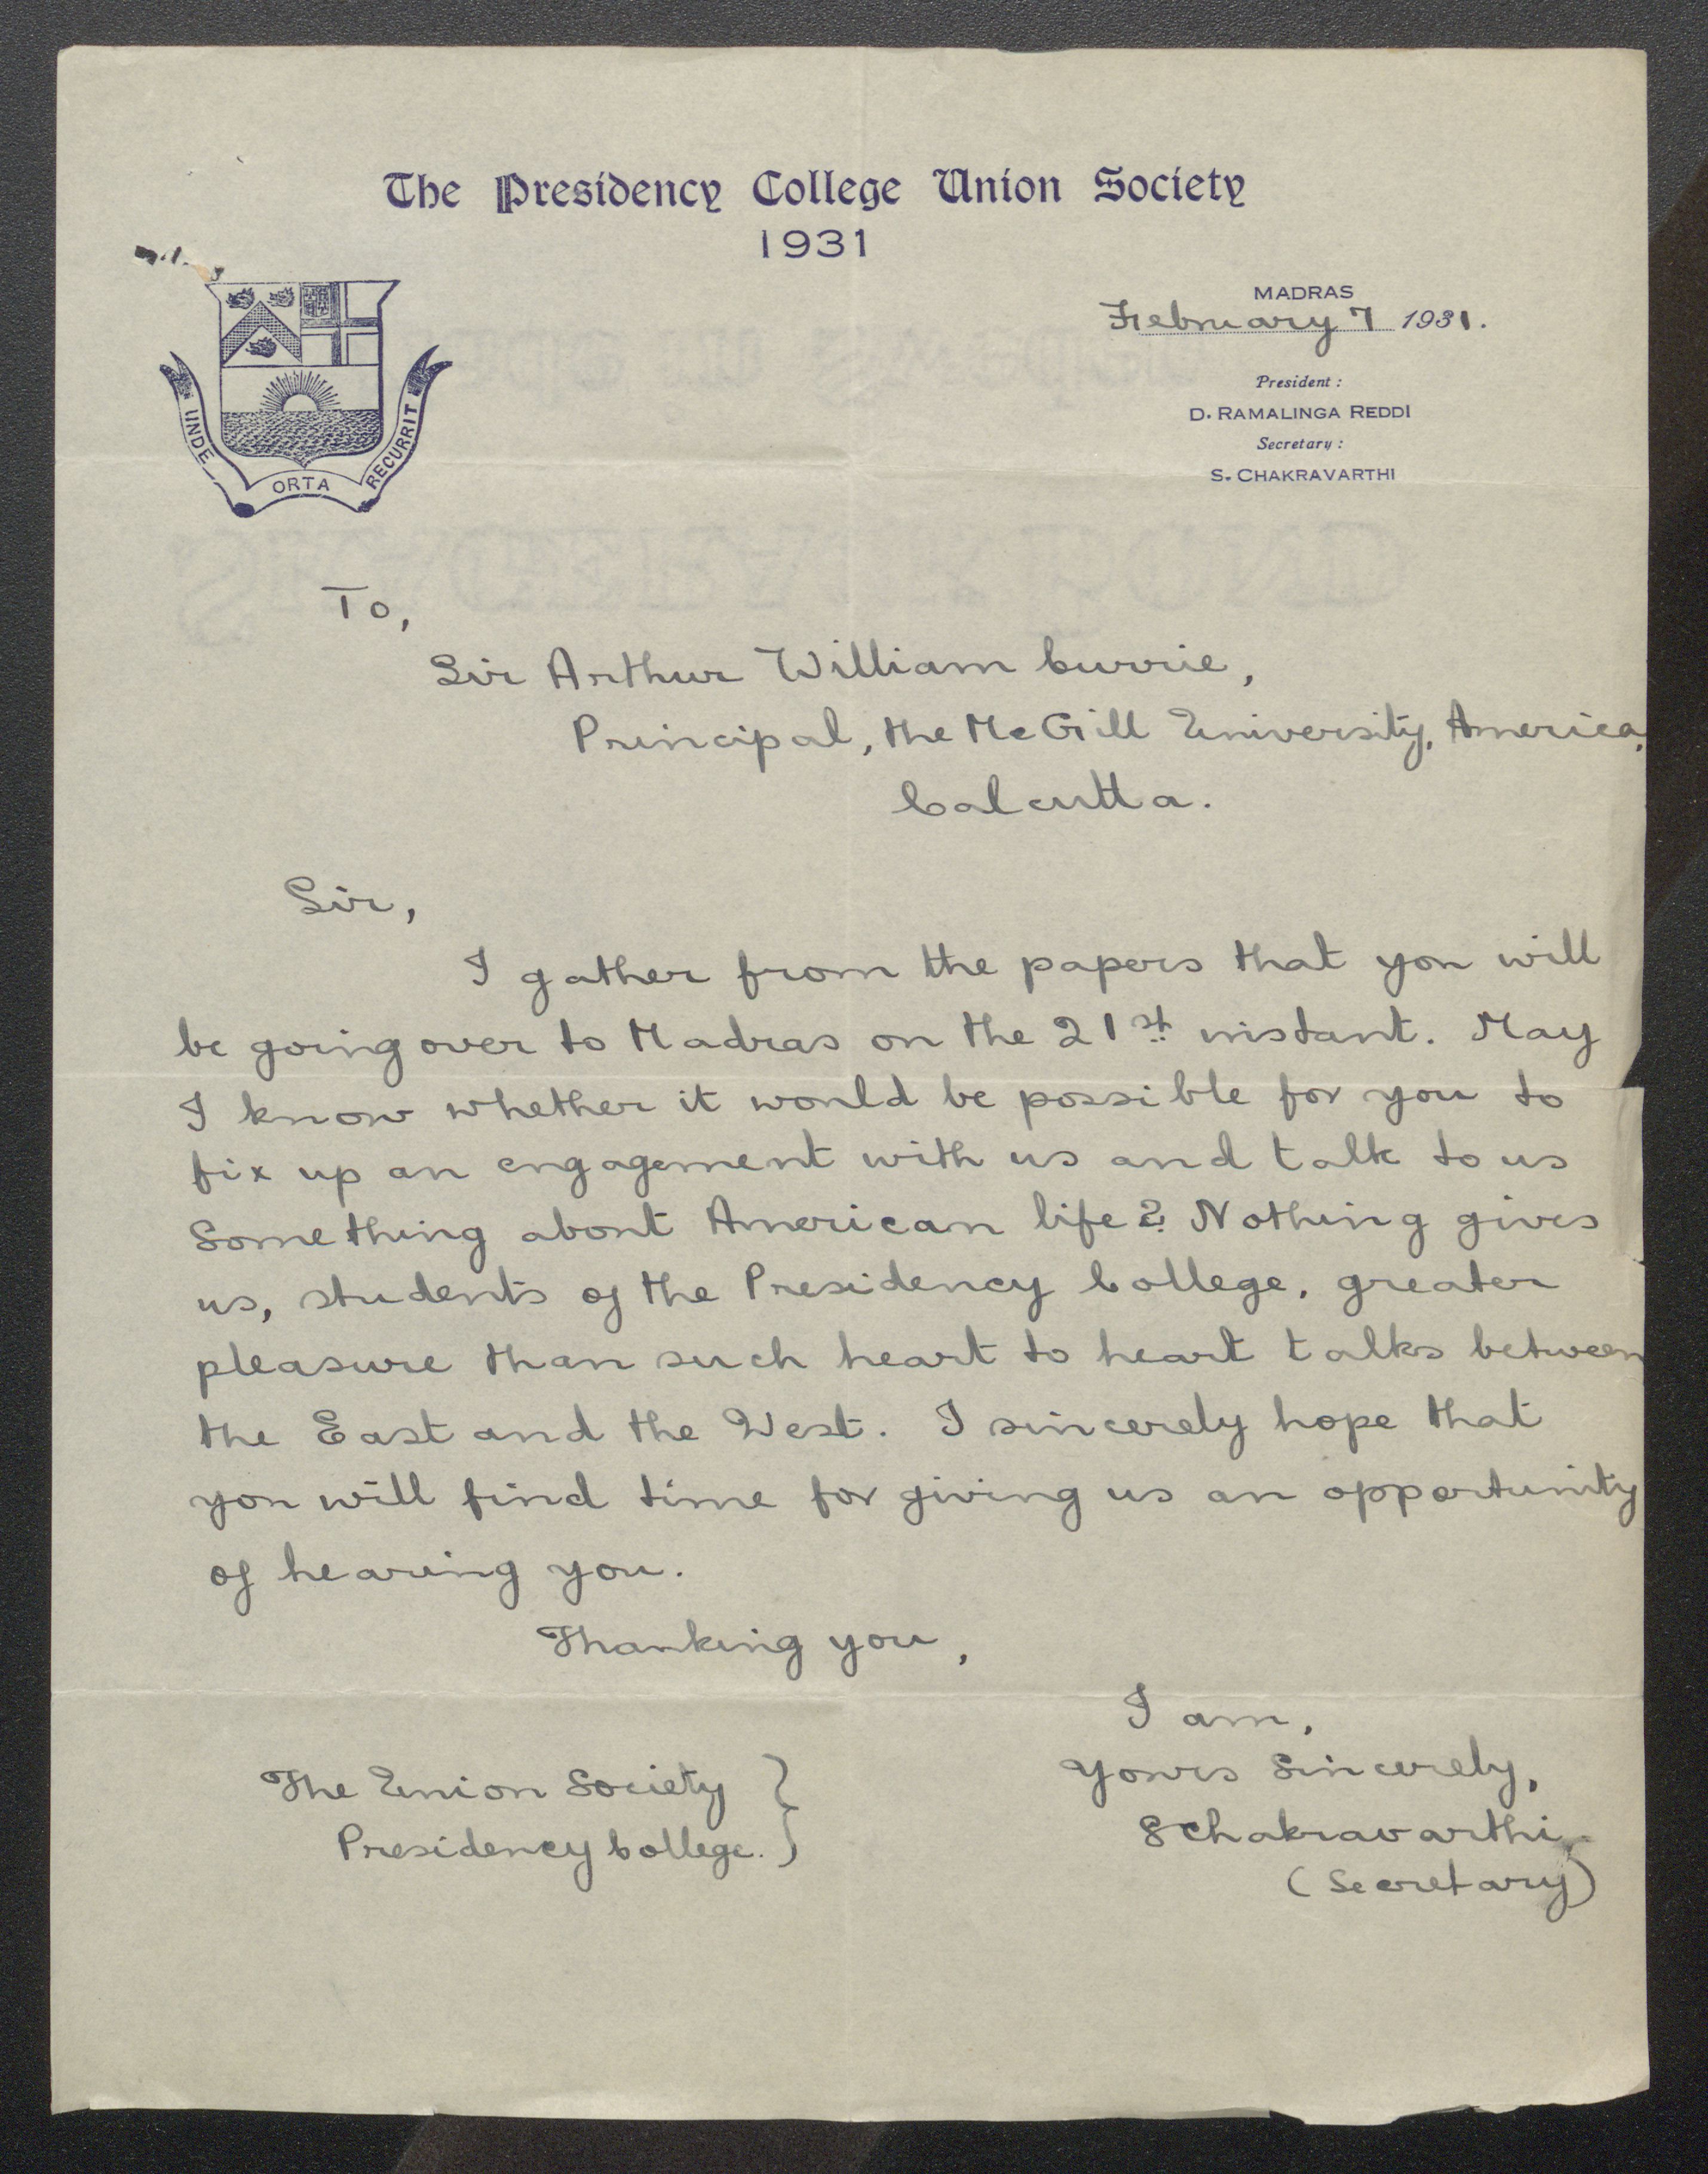 The Presidency College Union Society
1931
UNDE ORTA RECURRIT
MADRAS
February 7 1931.
President :
D. RAMALINGA REDDI
Secretary :
S. CHAKRAVARTHI
To,
Sir Arthur William Currie,
Principal, the McGill University, America,
Calcutta.
Sir,
I gather from the papers that you will
be going over to Madras on the 21st instant. May
I know whether it would be possible for you to
fix up an engagement with us and talk to us
something about American life? Nothing gives
us, students of the Presidency College, greater
pleasure than such heart to heart talks between
the East and the West. I sincerely hope that
you will find time for giving us an opportunity
of hearing you.
Thanking you,
I am,
Yours Sincerely,
S Chakravarthi.
(Secretary)
The Union Society
Presidency College.